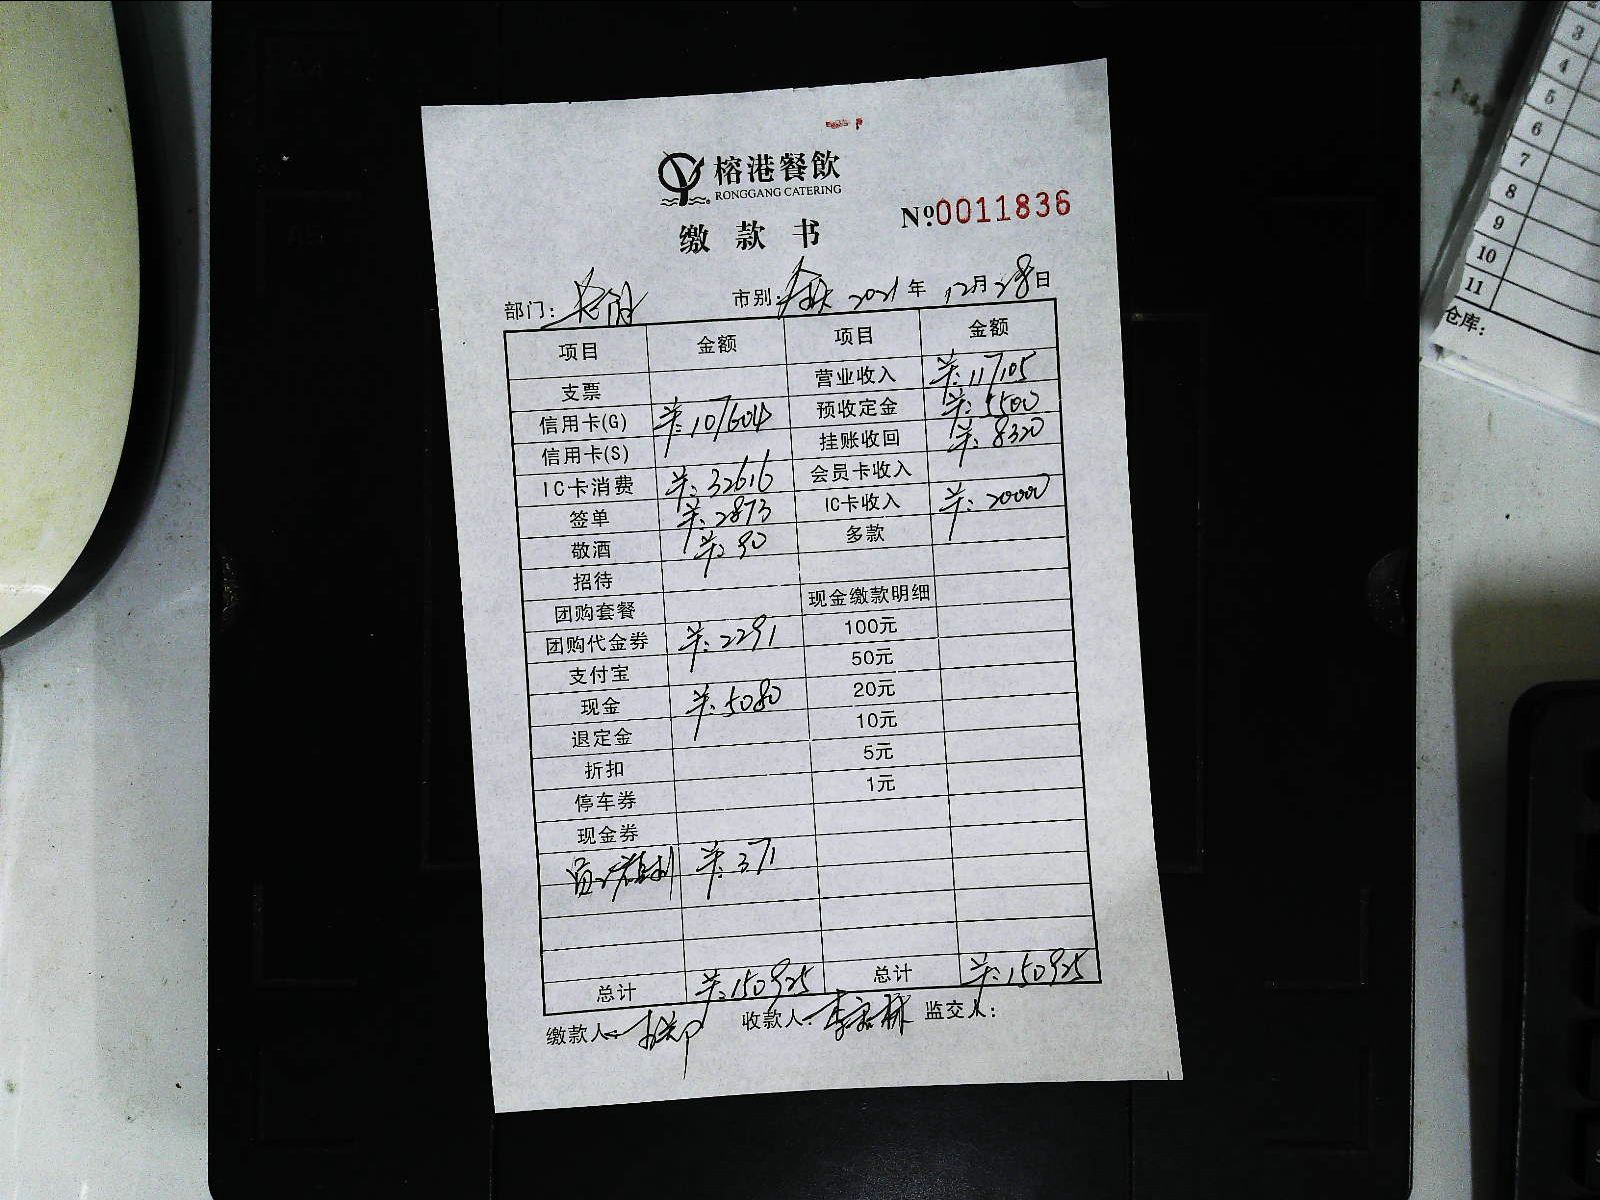 榕港餐飲
RONGGANG CATERING
缴款书
Nº.0011836
部门: 市别: 2021年12月28日
项目 金额 项目 金额
支票 营业收入 ¥:117105
信用卡(G) ¥:107604 预收定金 ¥:5500
信用卡(S) 挂账收回 ¥:8320
IC卡消费 ¥:32616 会员卡收入
签单 ¥:2873 IC卡收入 ¥:20000
敬酒 ¥:90 多款
招待
团购套餐 现金缴款明细
团购代金券 ¥:2291 100元
支付宝 50元
现金 ¥:5080 20元
退定金 10元
折扣 5元
停车券 1元
现金券
¥:371
总计 ¥:150925 总计 ¥:150925
缴款人: 收款人: 监交人:
3
4
5
6
7
8
9
10
11
仓库: